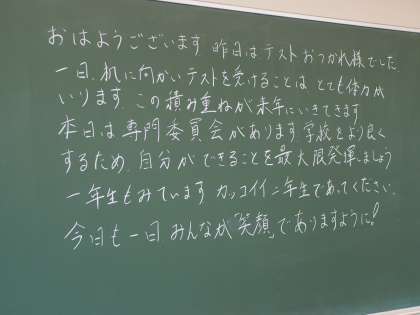 おはようございます 昨日はテストおつかれ様でした
一日、机に向かいテストを受けることは とても体力が
いります。この積み重ねが来年にいきてきます
本日は専門委員会があります。学校をより良く
するため、自分ができることを最大限発揮しましょう
一年生もみています カッコイイ二年生であってください。
今日も一日 みんなが「笑顔」でありますように!